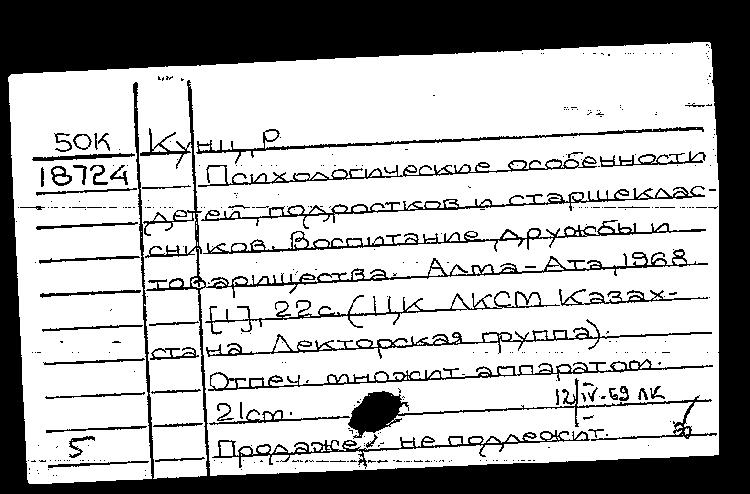 50К Кунц, Р
18724 Психологические особенности
детей, подростков и старшеклас-
сников. Воспитание дружбы и
товарищества. Алма-Ата, 1968.
[1], 22с. (ЦК ЛКСМ Казах-
стана. Лекторская группа).
Отпеч. множит. аппаратом.
21см. 12/IV-69 ЛК
5 Продаже не подлежит.